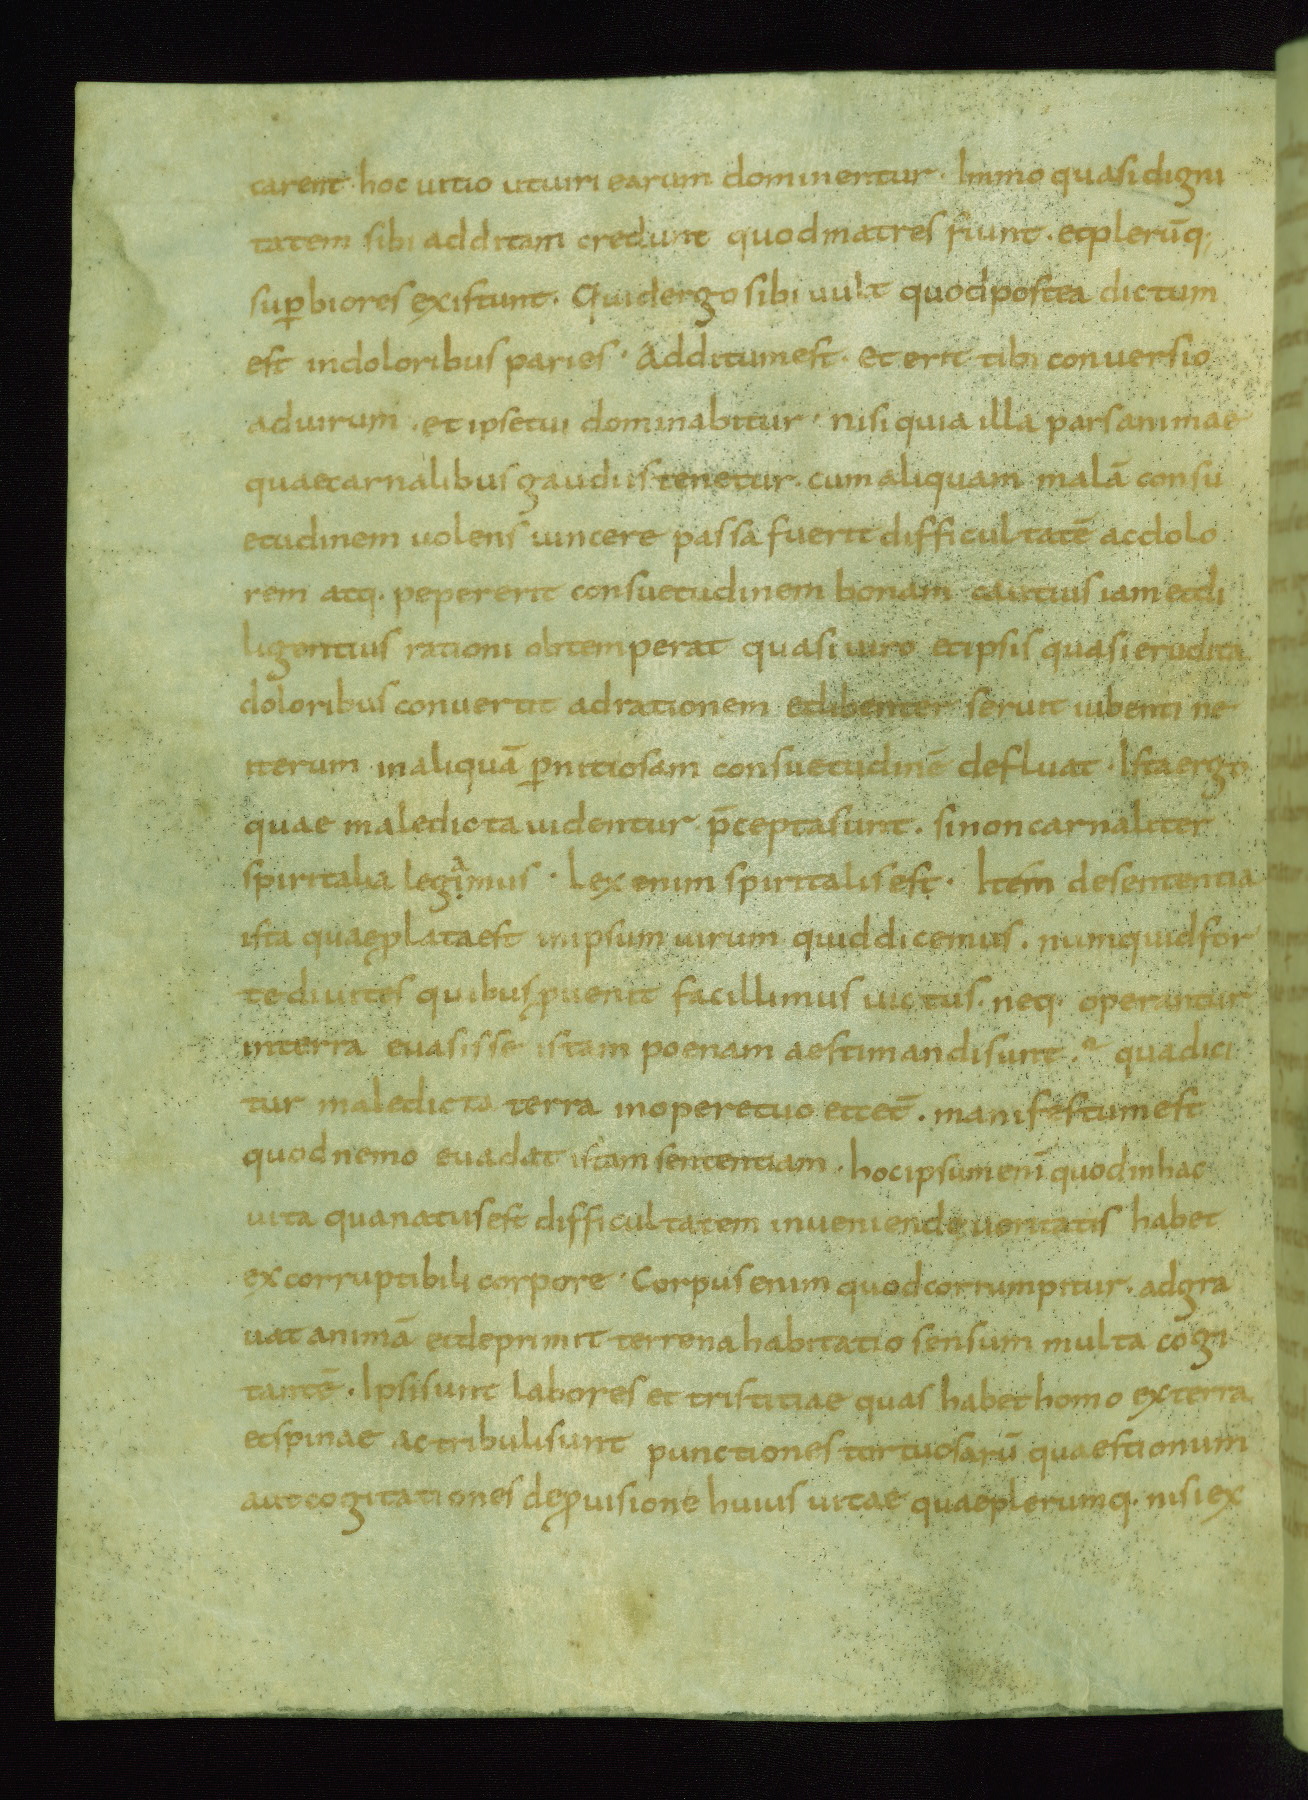 tarent · hoc uitio ut uiri earum dominentur · Immo quasi digni
tatem sibi additam credunt quod matres fiunt · et plerūq;
sup̄biores existunt · Quid ergo sibi uult quod postea dictum
est in doloribus paries · Additum est · et erit tibi conuersio
ad uirum · et ipse tui dominabitur · nisi quia illa pars animae
quae carnalibus gaudiis tenetur · cum aliquam malā consu
etudinem uolens uincere passa fuerit difficultatē ac dolo
rem atq· pepererit consuetudinem bonam cautius iam et di
ligentius rationi obtemperat quasi uiro et ipsis quasi erudita
doloribus conuertit ad rationem et libenter seruit iubenti ne
iterum in aliquā p̄nitiosam consuetudinē defluat · Ista ergo
quae maledicta uidentur p̄cepta sunt · si non carnaliter
spiritalia legimus · Lex enim spiritalis est · Item de sententia
ista quae ꝓlata est in ipsum uirum quid dicemus · numquid for
te diuites quibus ꝓuenit facillimus uictus · neq· operantur
in terra euasisse istam poenam aestimandi sunt · qua dici
tur maledicta terra in opere tuo et cet̄ · manifestum est
quod nemo euadat istam sententiam · hoc ipsum enī quod in hac
uita qua natus est difficultatem inueniendę ueritatis habet
ex corruptibili corpore · Corpus enim quod corrumpitur · adgra
uat animā et deprimit terrena habitatio sensum multa cogi
tantē · Ipsi sunt labores et tristitiae quas habet homo ex terra
et spinae ac tribuli sunt punctiones tortuosarū quaestionum
aut cogitationes de ꝓuisione huius uitae quae plerumq· nisi ex